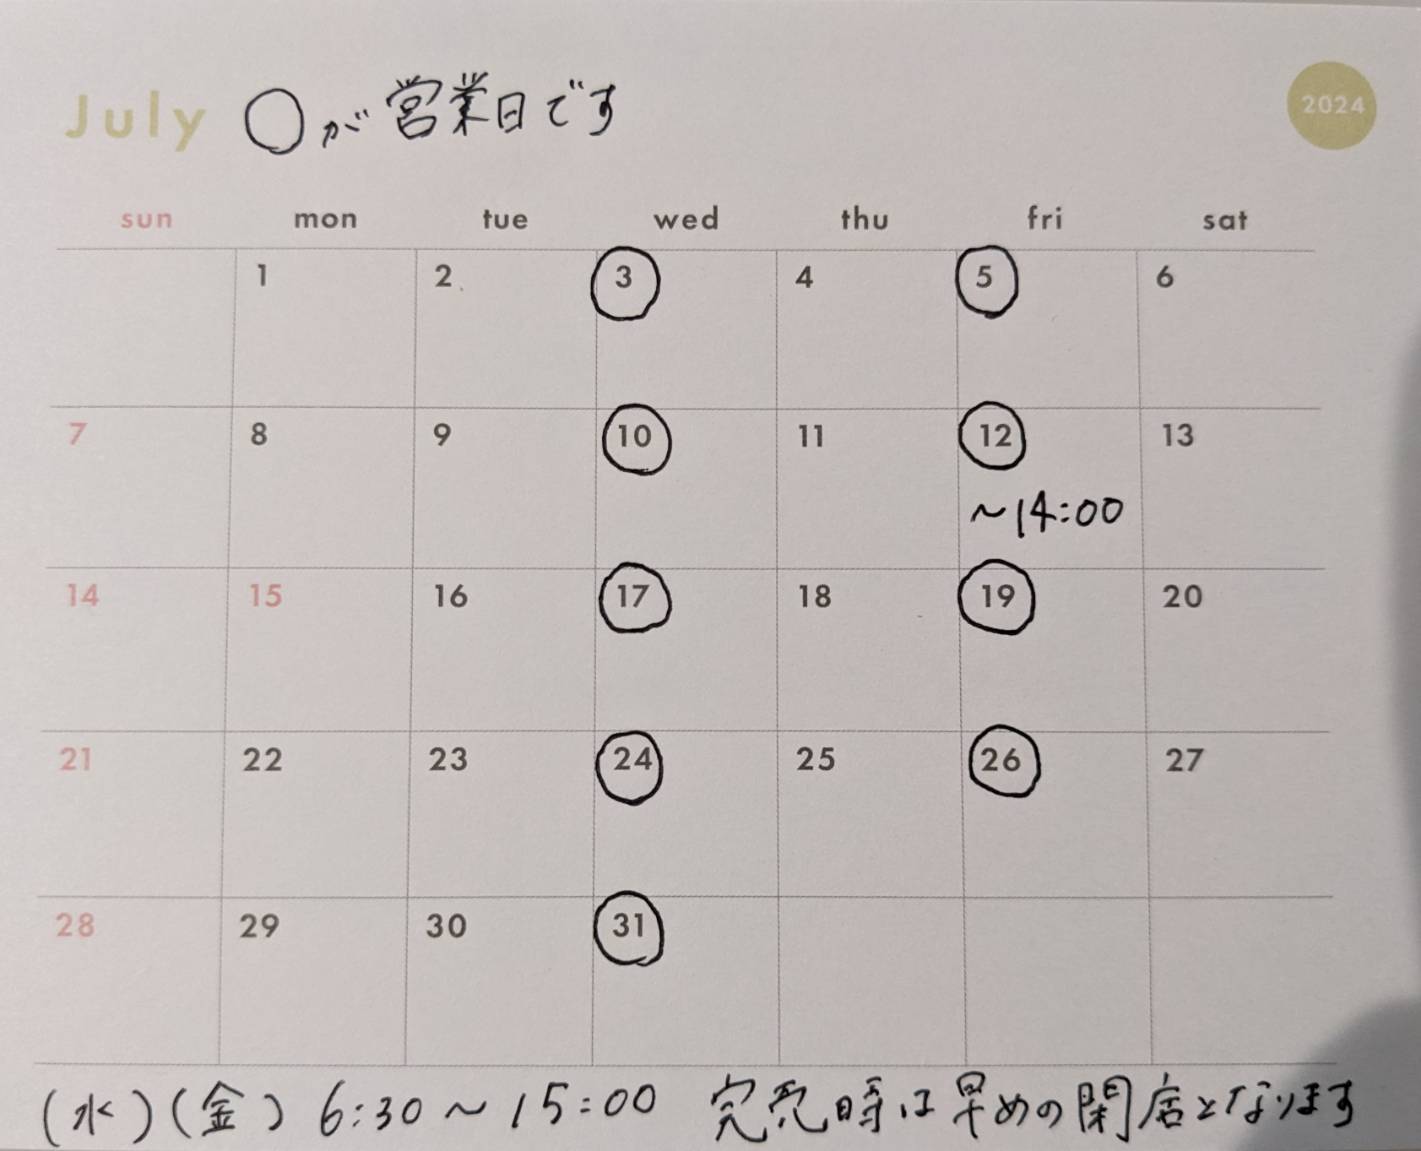 July ○が営業日です 2024
sun mon tue wed thu fri sat
1 2 3 4 5 6
7 8 9 10 11 12 13
~14:00
14 15 16 17 18 19 20
21 22 23 24 25 26 27
28 29 30 31
(水)(金) 6:30~15:00 完売時は早めの閉店となります